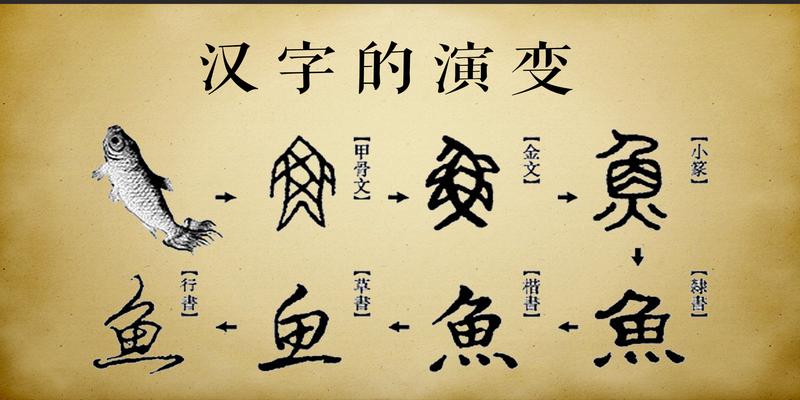 汉字的演变
【甲骨文】
【金文】
【小篆】
【隸書】
魚
【楷書】
魚
【草書】
鱼
【行書】
鱼